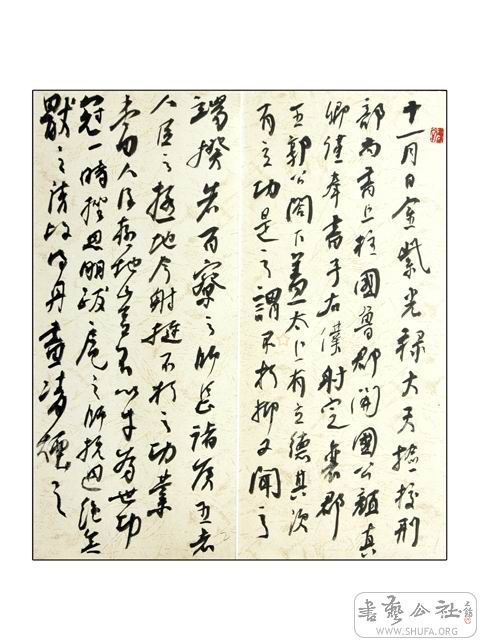 十一月日金紫光禄大夫檢校刑
部尚書上柱國魯郡開國公顏真
卿謹奉書于右僕射定襄郡
王郭公閣下蓋太上有立德其次
有立功是之謂不朽抑又聞之
端揆者百寮之師長諸侯王者
人臣之極地今射挺不朽之功業
當人臣極地豈不以才為世功
冠一時挫思明跋扈之師抗迴紇無
猒之請故得身畫凌煙之
書藝公社
WWW.SHUFA.ORG